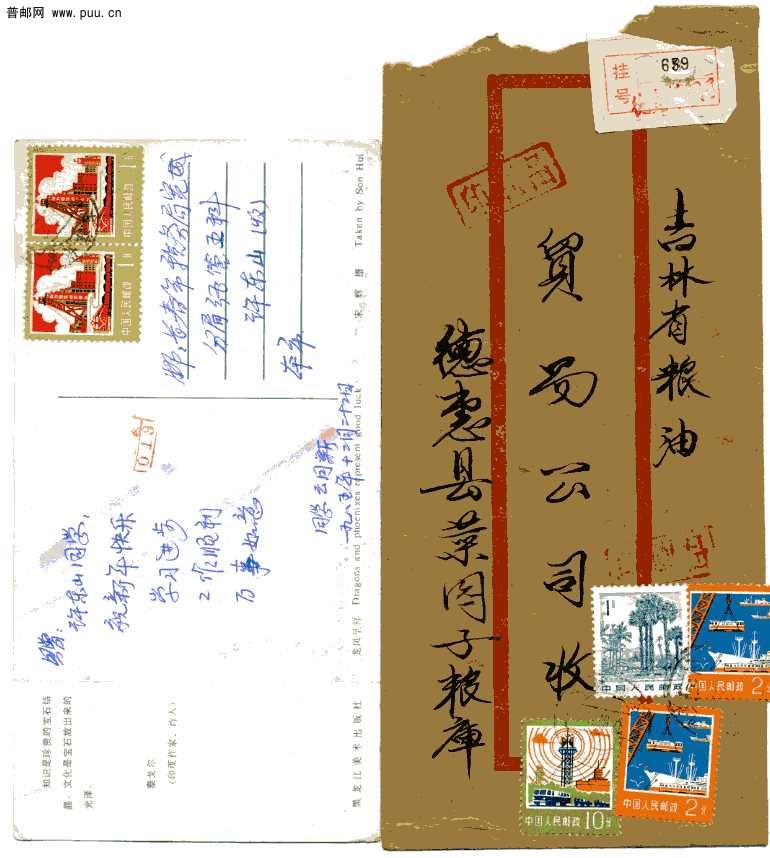 普邮网 www.puu.cn
中国人民邮政
中国人民邮政
长春市税务局宽城
分局
第五科
许东山(收)
许东山同学:
祝新年快乐
学习进步
工作顺利
万事如意
一九八五年十二月二十二日
知识是珍贵的宝石结
晶,文化是宝石放出来的
光泽。
泰戈尔
(印度作家、诗人)
黑龙江美术出版社
龙凤呈祥 Dragons and phoenixes represent good luck
宋辉 摄 Taken by Son Hui
挂号
689
吉林省粮油
贸易公司收
德惠县菜园子粮库
1分
中国人民邮政
中国人民邮政 2分
中国人民邮政 2分
中国人民邮政 10分